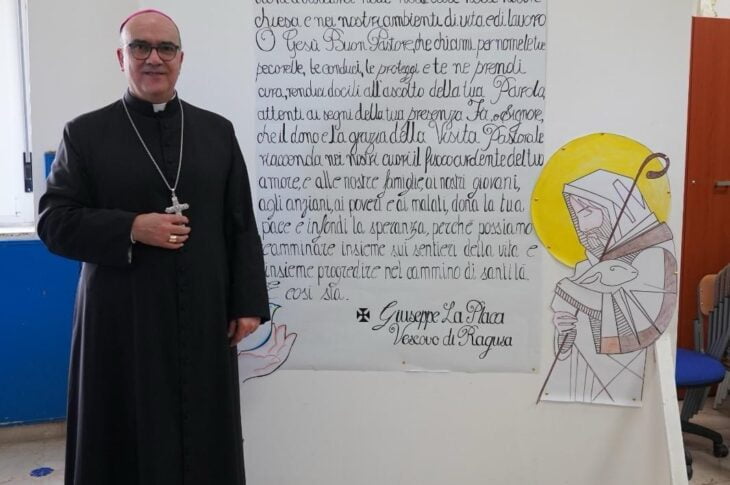 chiesa e nei nostri ambienti di vita e di lavoro
O Gesù Buon Pastore, che chiami per nome le tue
pecorelle, le conduci, le proteggi e te ne prendi
cura, rendici docili all'ascolto della tua Parola,
attenti ai segni della tua presenza. Fa, o Signore,
che il dono e la grazia della Visita Pastorale
riaccenda nei nostri cuori il fuoco ardente del tuo
amore, e alle nostre famiglie, ai nostri giovani,
agli anziani, ai poveri e ai malati, dona la tua
pace e infondi la speranza, perché possiamo
camminare insieme sui sentieri della vita e
insieme progredire nel cammino di santità.
Così sia.
✠ Giuseppe La Placa
Vescovo di Ragusa